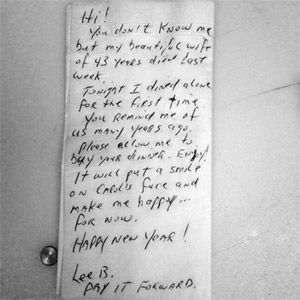 Hi!
You don't know me
but my beautiful wife
of 43 years died last
week...
Tonight I dined alone
for the first time
You remind me of
us many years ago.
Please allow me to
buy your dinner. Enjoy!
It will put a smile
on Carol's face and
make me happy...
for now.
Happy New Year!
Lee B.
Pay it forward.